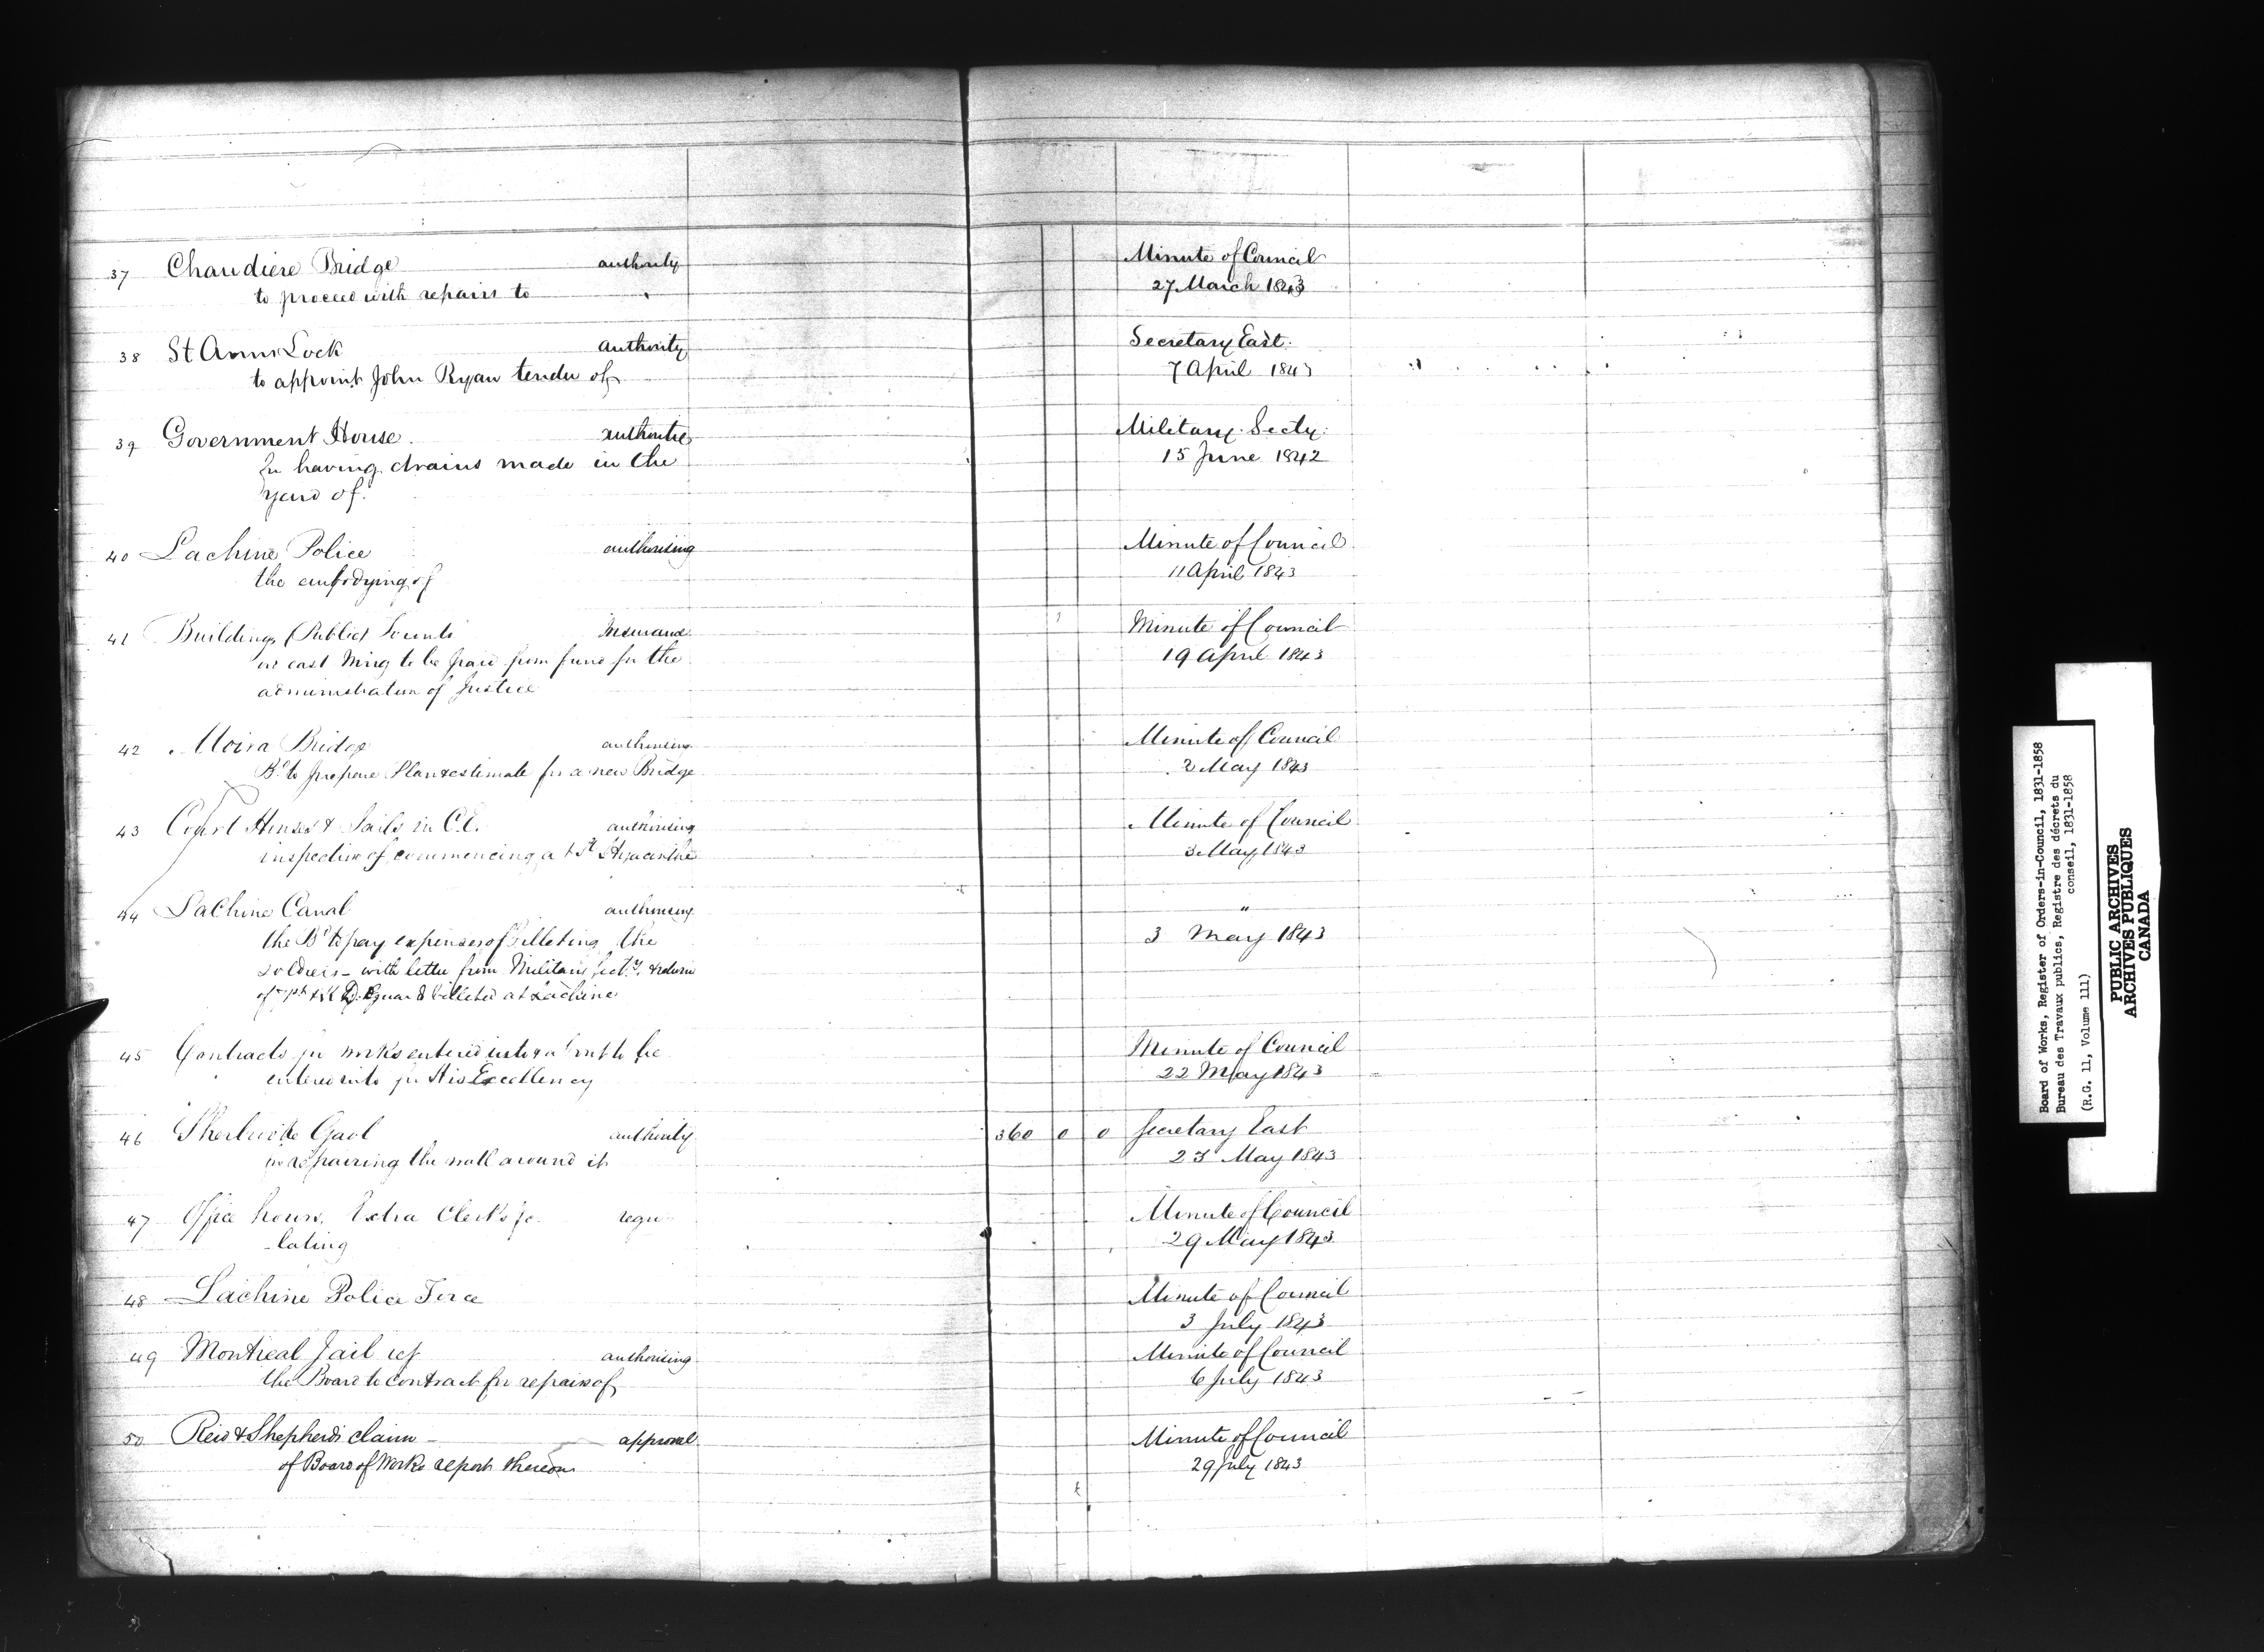 37 Chaudiere Bridge authority Minute of Council
to proceed with repairs to 27 March 1843
38 St Anns Lock authority Secretary East.
to appoint John Ryan tender of 7 April 1843
39 Government House. Military Secty:
for having drains made in the 15 June 1842
yard of.
40 Lachine Police authorising Minute of Council
the embodying of 11 April 1843
41 Buildings (Public) Insurance Minute of Council
on east Wing to be paid from fund for the 19 April 1843
administration of Justice
42 Moira Bridge authorising Minute of Council
Bd to prepare Plan & estimate for a new Bridge 2 May 1843
43 Court Houses & Jails in C.E. authorising Minute of Council
inspection of commencing at St Hyacinthe 3 May 1843
44 Lachine Canal authorising "
the Bd to pay expenses of Billeting the 3 May 1843
soldiers - with letter from Military Secty. & return
of billeted at Lachine
45 Contracts for works entered into & about to be Minute of Council
entered into for His Excellency 22 May 1843
46 Sherbrooke Gaol authority 360 0 0 Secretary East
for repairing the wall around it 23 May 1843
47 Office hours. Extra Clerks &c. regu- Minute of Council
-lating 29 May 1843
48 Lachine Police Force Minute of Council
3 July 1843
49 Montreal Jail authorising Minute of Council
the Board to contract for repairs of 6 July 1843
50 Reid & Shepherds claim - approval Minute of Council
of Board of Works report thereon 29 July 1843
Board of Works, Register of Orders-in-Council, 1831-1858
Bureau des Travaux publics, Registre des décrets du
conseil, 1831-1858
(R.G. 11, Volume 111)
PUBLIC ARCHIVES
ARCHIVES PUBLIQUES
CANADA